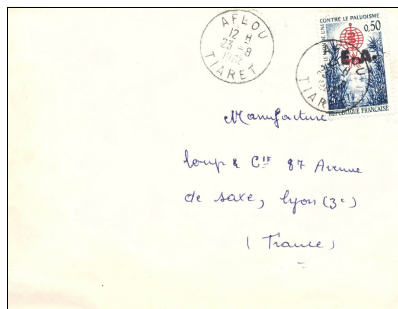 AFLOU
12 H
23 - 8
1962
TIARET
CONTRE LE PALUDISME
0,50
E.A.
TIARET
RÉPUBLIQUE FRANÇAISE
Manufacture
Loup & Cie 87 Avenue
de saxe, Lyon (3e)
(France)